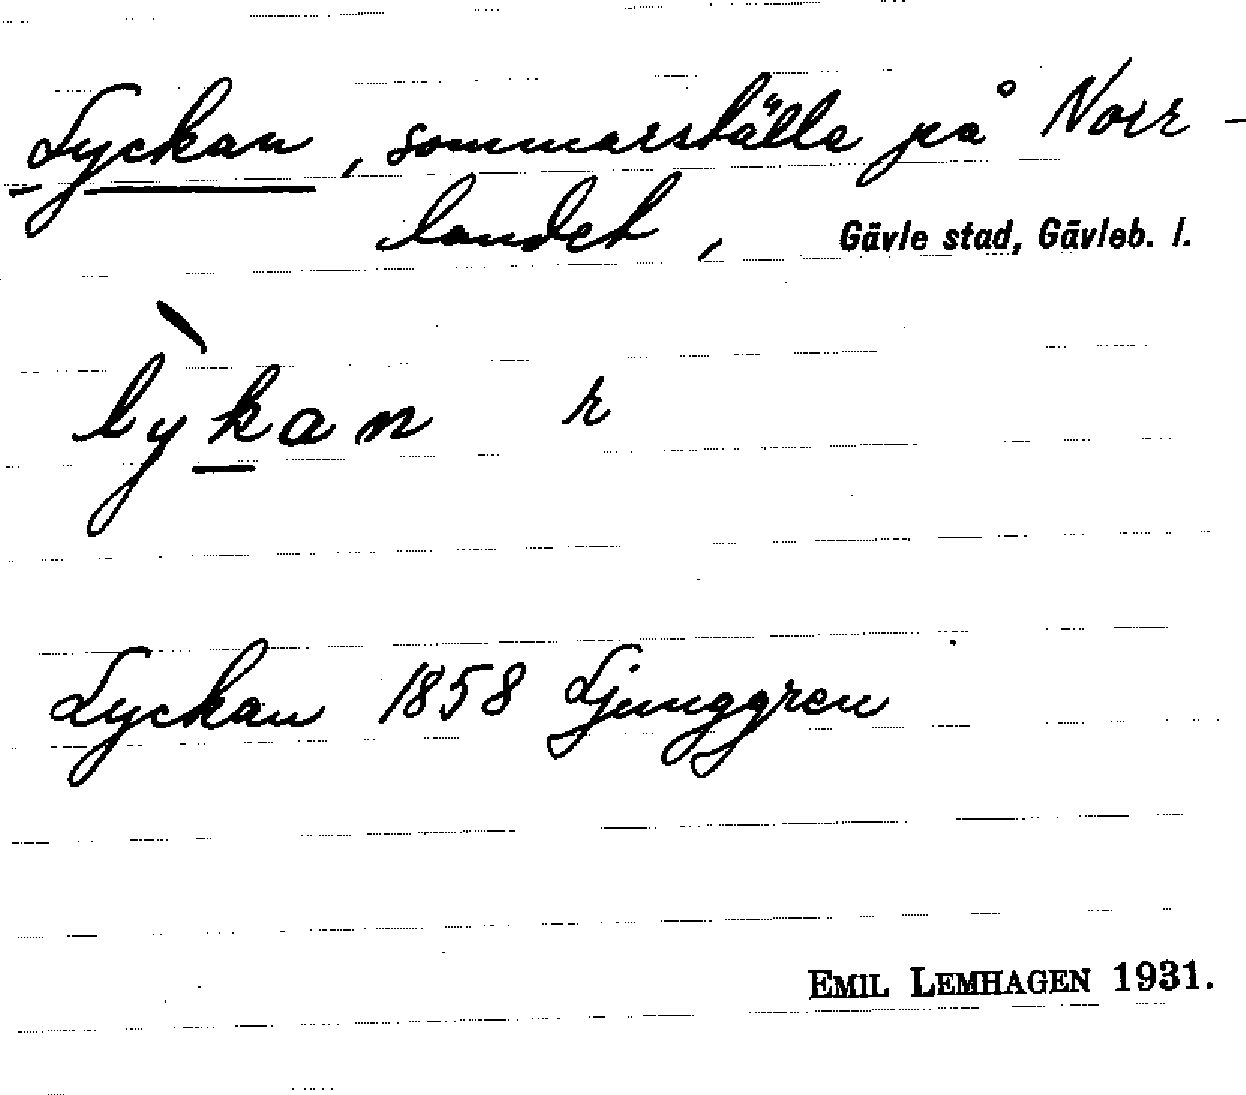 Lyckan, sommarställe på Norr-
landet, Gävle stad, Gävleb. l.
lỳkan r
Lyckan 1858 Ljunggren
EMIL LEMHAGEN 1931.